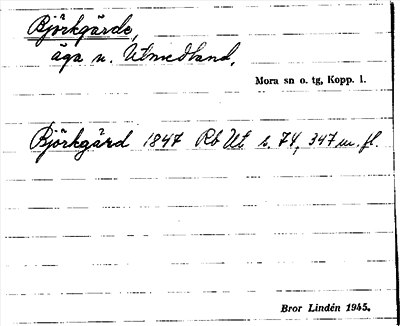 Björkgärde,
äga n. Utmedland.
Mora sn o. tg, Kopp. l.
Björkgärd 1847 Rb Ut s. 74, 347 m. fl.
Bror Lindén 1945.